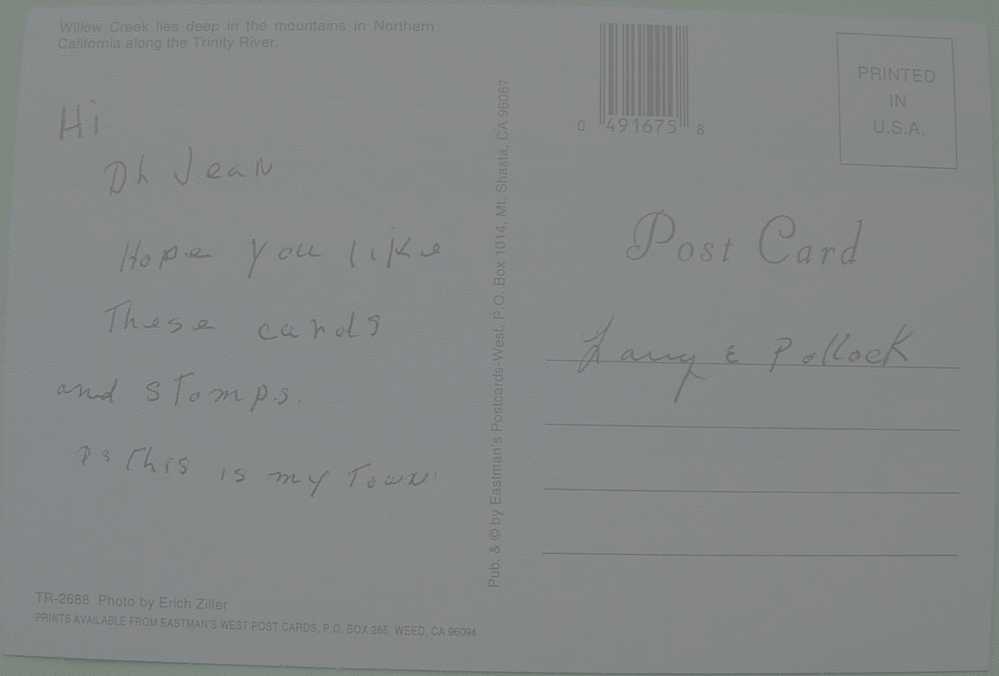 Willow Creek lies deep in the mountains in Northern
California along the Trinity River.
Hi
Dh Jean
Hope you like
These cards
and stomps.
Ps This is my Town
TR-2688 Photo by Erich Ziller
PRINTS AVAILABLE FROM EASTMAN'S WEST POST CARDS, P.O. BOX 265, WEED, CA 96094
Pub. & © by Eastman's Postcards-West, P.O. Box 1014, Mt. Shasta, CA 96067
0 491675 8
PRINTED
IN
U.S.A.
Post Card
Larry E Pollock